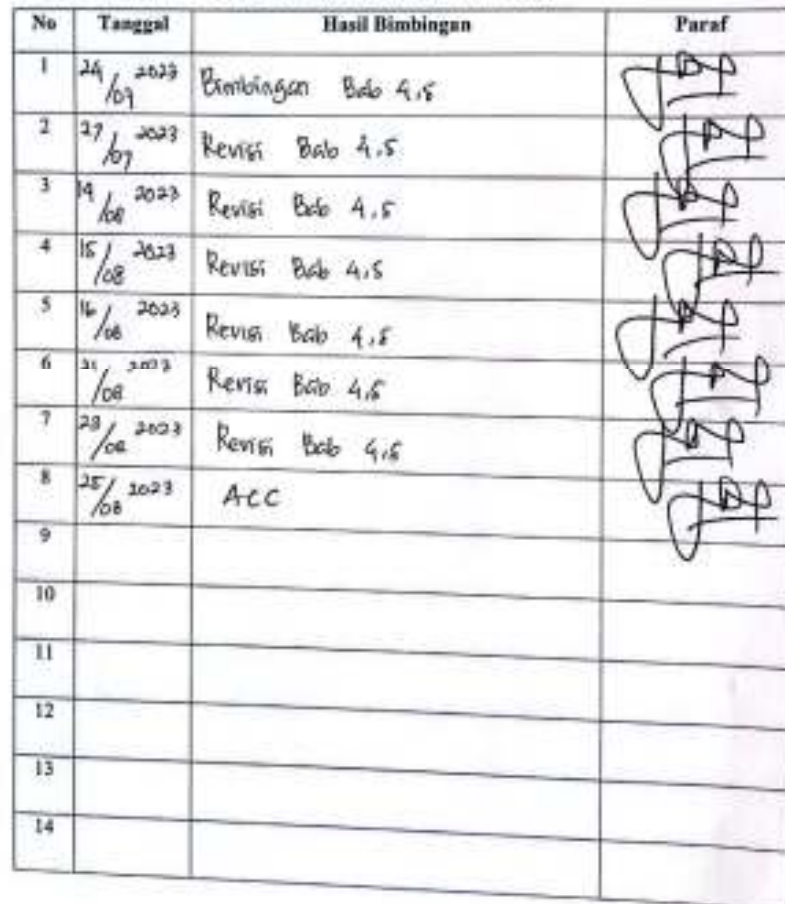 No Tanggal Hasil Bimbingan Paraf
1 24/07 2023 Bimbingan Bab 4,5
2 27/07 2023 Revisi Bab 4,5
3 14/08 2023 Revisi Bab 4,5
4 15/08 2023 Revisi Bab 4,5
5 16/08 2023 Revisi Bab 4,5
6 21/08 2023 Revisi Bab 4,5
7 23/08 2023 Revisi Bab 4,5
8 25/08 2023 ACC
9
10
11
12
13
14